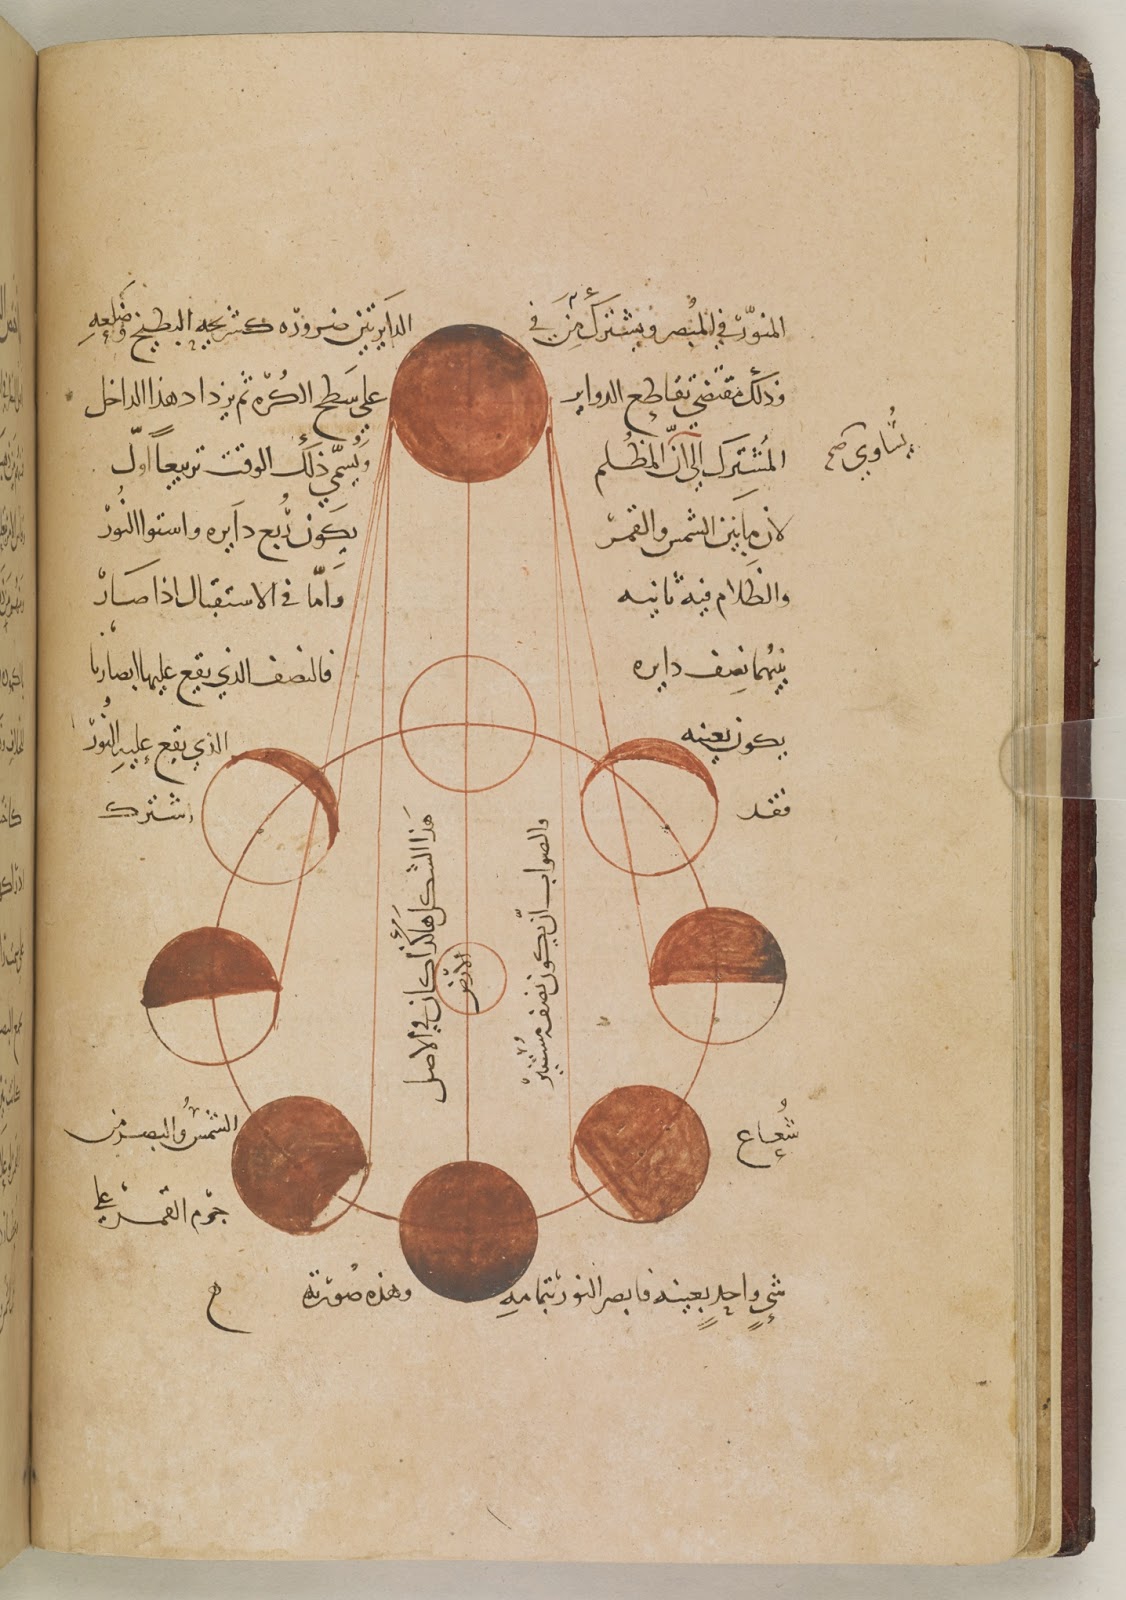 المنوّر في المبصر ويشترك من في الدايرتين ضرورة كشريحه البطيخ وضلعه
وذلك مقتضي تقاطع الدواير علي سطح الكرة ثم يزداد هذا الداخل
المشترك إلي انّ المظلم ويُسمّي ذلك الوقت تربيعاً اول
يتساوي صح
لان ما بين الشمس والقمر يكون رُبع دايره واستوا النُور
والظلام فيه ثانيه وامّا في الاستقبال اذا صار
بينهما نصف دايره فالنصف الذي يقع عليها ابصارنا
يكون بعينه الذي يقع عليه النُور
فقد اشترك
شُعاع الشمس والبصر من
جرم القمر علي
شيءٍ واحدٍ بعينه فابصر النور بتمامه وهذه صُورته
هذا الشكل هاكذا كان في الاصل
الارض
والصواب انّ يكون نصفه مستنير